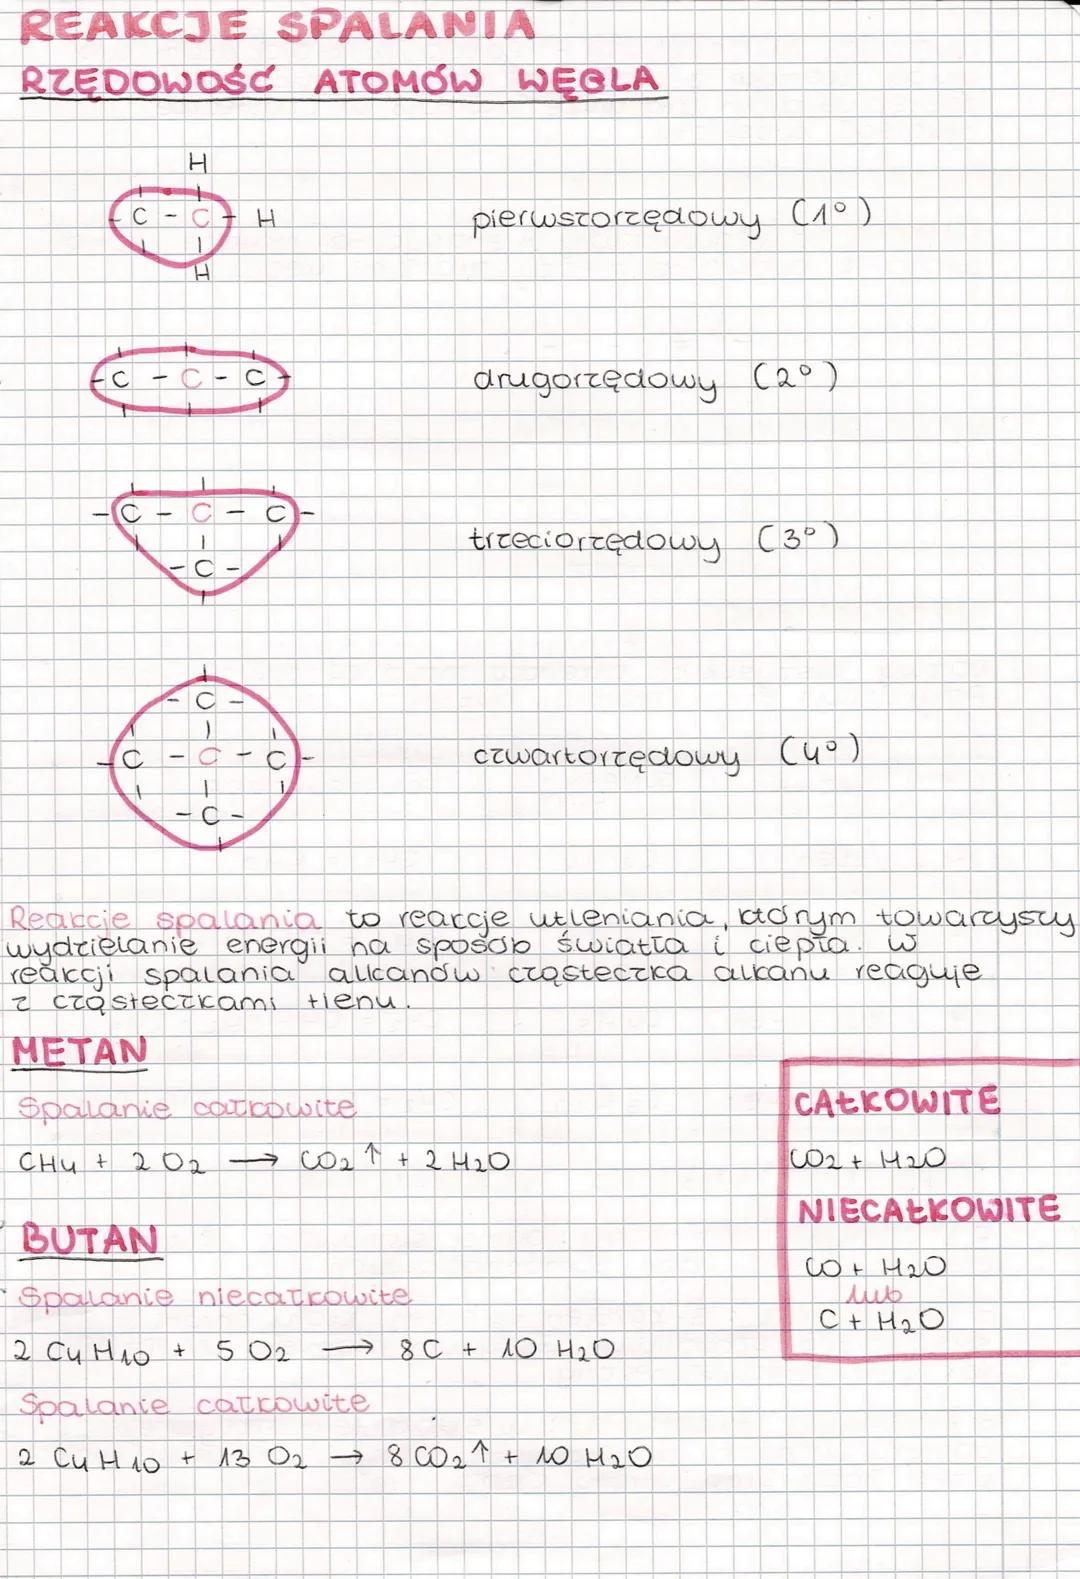 REAKCJE SPALANIA
RZĘDOWOŚĆ ATOMÓW WĘGLA
H
- C - C - H
H
pierwszorzędowy (1°)
- C - C - C -
drugorzędowy (2°)
- C - C - C -
- C -
trzeciorzędowy (3°)
- C -
- C - C - C -
- C -
czwartorzędowy (4°)
Reakcje spalania to reakcje utleniania, którym towarzyszy
wydzielanie energii na sposób światła i ciepła. W
reakcji spalania alkanów cząsteczka alkanu reaguje
z cząsteczkami tlenu.
METAN
Spalanie całkowite
CH4 + 2 O2 → CO2↑ + 2 H2O
CAŁKOWITE
CO2 + H2O
NIECAŁKOWITE
CO + H2O
lub
C + H2O
BUTAN
Spalanie niecałkowite
2 C4H10 + 5 O2 → 8 C + 10 H2O
Spalanie całkowite
2 C4H10 + 13 O2 → 8 CO2↑ + 10 H2O